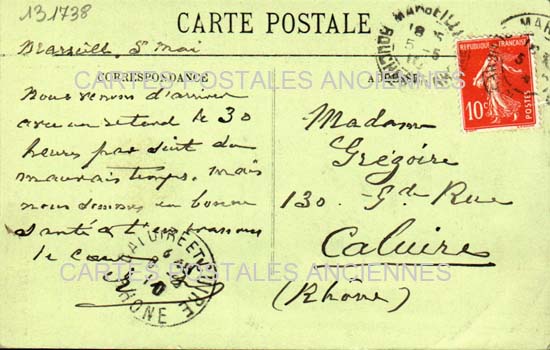 131738
CARTE POSTALE
Marseille, 5 Mai
CORRESPONDANCE
ADRESSE
MARSEILLE
18
5-5
BOUCHES
RÉPUBLIQUE FRANÇAISE
10c
POSTES
CARTES POSTALES ANCIENNES
Nous venons d'arriver
avec un retard de 30
heures par suite du
mauvais temps. Mais
nous sommes en bonne
santé et t'embrassons
de cœur
Madame
Grégoire
130 Gde Rue
Caluire
(Rhône)
CALUIRE ET CUIRE
RHONE
CARTES POSTALES ANCIENNES